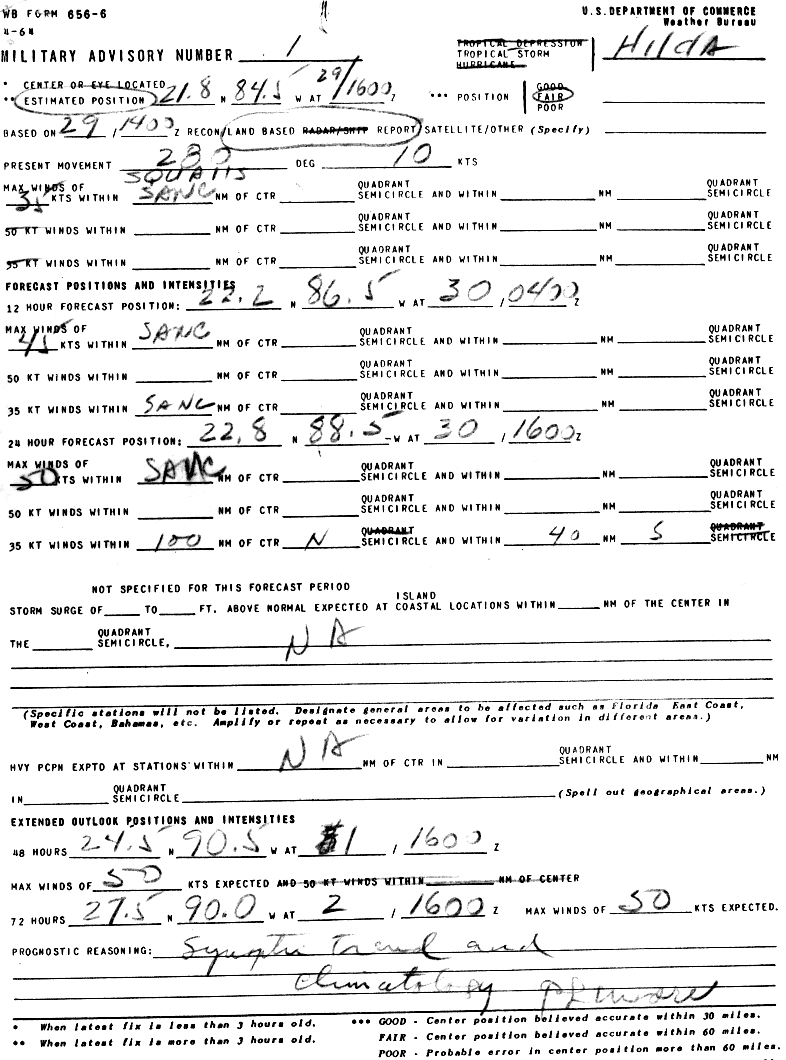 WB FORM 656-6
4-64
U.S. DEPARTMENT OF COMMERCE
Weather Bureau
MILITARY ADVISORY NUMBER 1
TROPICAL DEPRESSION
TROPICAL STORM
HURRICANE
Hilda
* CENTER OR EYE LOCATED
** ESTIMATED POSITION 21.8 N 84.5 W AT 29/1600Z
*** POSITION
GOOD
FAIR
POOR
BASED ON 29 / 1400 Z RECON/LAND BASED RADAR/SHIP REPORT/SATELLITE/OTHER (Specify)
PRESENT MOVEMENT 280 DEG 10 KTS
SQUALLS
MAX WINDS OF QUADRANT QUADRANT
35 KTS WITHIN SANC NM OF CTR SEMICIRCLE AND WITHIN NM SEMICIRCLE
QUADRANT QUADRANT
50 KT WINDS WITHIN NM OF CTR SEMICIRCLE AND WITHIN NM SEMICIRCLE
QUADRANT QUADRANT
35 KT WINDS WITHIN NM OF CTR SEMICIRCLE AND WITHIN NM SEMICIRCLE
FORECAST POSITIONS AND INTENSITIES
12 HOUR FORECAST POSITION: 22.2 N 86.5 W AT 30 / 0400 Z
MAX WINDS OF QUADRANT QUADRANT
45 KTS WITHIN SANC NM OF CTR SEMICIRCLE AND WITHIN NM SEMICIRCLE
QUADRANT QUADRANT
50 KT WINDS WITHIN NM OF CTR SEMICIRCLE AND WITHIN NM SEMICIRCLE
QUADRANT QUADRANT
35 KT WINDS WITHIN SANC NM OF CTR SEMICIRCLE AND WITHIN NM SEMICIRCLE
24 HOUR FORECAST POSITION: 22.8 N 88.5 W AT 30 / 1600 Z
MAX WINDS OF QUADRANT QUADRANT
50 KTS WITHIN SANC NM OF CTR SEMICIRCLE AND WITHIN NM SEMICIRCLE
QUADRANT QUADRANT
50 KT WINDS WITHIN NM OF CTR SEMICIRCLE AND WITHIN NM SEMICIRCLE
QUADRANT QUADRANT
35 KT WINDS WITHIN 100 NM OF CTR N SEMICIRCLE AND WITHIN 40 NM S SEMICIRCLE
NOT SPECIFIED FOR THIS FORECAST PERIOD
ISLAND
STORM SURGE OF TO FT. ABOVE NORMAL EXPECTED AT COASTAL LOCATIONS WITHIN NM OF THE CENTER IN
QUADRANT
THE SEMICIRCLE, NA
(Specific stations will not be listed. Designate general areas to be affected such as Florida East Coast,
West Coast, Bahamas, etc. Amplify or repeat as necessary to allow for variation in different areas.)
QUADRANT
HVY PCPN EXPTD AT STATIONS WITHIN NA NM OF CTR IN SEMICIRCLE AND WITHIN NM
QUADRANT
IN SEMICIRCLE (Spell out geographical areas.)
EXTENDED OUTLOOK POSITIONS AND INTENSITIES
48 HOURS 24.5 N 90.5 W AT 1 / 1600 Z
MAX WINDS OF 50 KTS EXPECTED AND 50 KT WINDS WITHIN NM OF CENTER
72 HOURS 27.5 N 90.0 W AT 2 / 1600 Z MAX WINDS OF 50 KTS EXPECTED.
PROGNOSTIC REASONING: Synoptic trend and
climatology
* When latest fix is less than 3 hours old.
** When latest fix is more than 3 hours old.
*** GOOD - Center position believed accurate within 30 miles.
FAIR - Center position believed accurate within 60 miles.
POOR - Probable error in center position more than 60 miles.